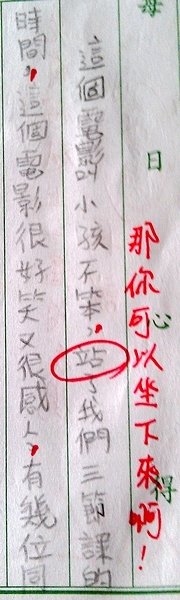 每日心得
那你可以坐下來啊！
這個電影叫小孩不笨，站了我們三節課的
時間，這個電影很好笑又很感人，有幾位同